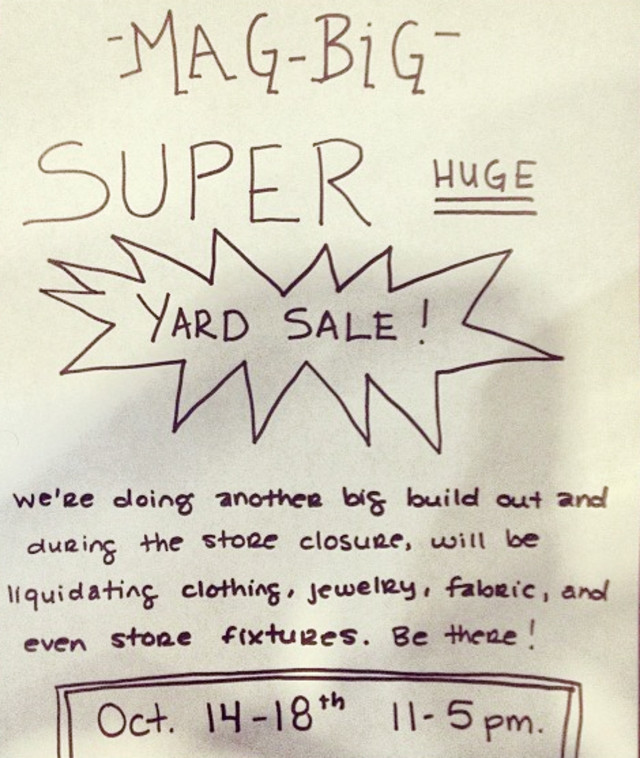 -MAG-BiG-
SUPER HUGE
YARD SALE!
we're doing another big build out and
during the store closure, will be
liquidating clothing, jewelry, fabric, and
even store fixtures. Be there!
Oct. 14-18th 11-5 pm.